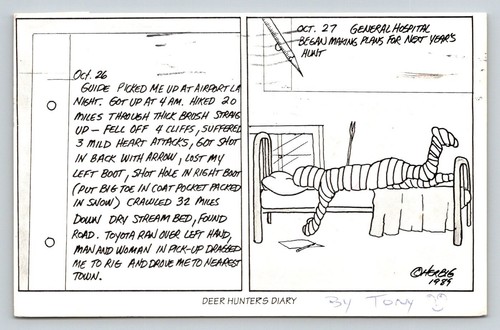 Oct. 26
GUIDE PICKED ME UP AT AIRPORT LA
NIGHT. GOT UP AT 4 AM. HIKED 20
MILES THROUGH THICK BRUSH STRAIG
UP – FELL OFF 4 CLIFFS, SUFFERED
3 MILD HEART ATTACKS, GOT SHOT
IN BACK WITH ARROW, LOST MY
LEFT BOOT, SHOT HOLE IN RIGHT BOOT
(PUT BIG TOE IN COAT POCKET PACKED
IN SNOW) CRAWLED 32 MILES
DOWN DRY STREAM BED, FOUND
ROAD. TOYOTA RAN OVER LEFT HAND,
MAN AND WOMAN IN PICK-UP DRAGGED
ME TO RIG AND DROVE ME TO NEAREST
TOWN.
OCT. 27 GENERAL HOSPITAL
BEGAN MAKING PLANS FOR NEXT YEAR'S
HUNT
1989
DEER HUNTERS DIARY
BY TONY